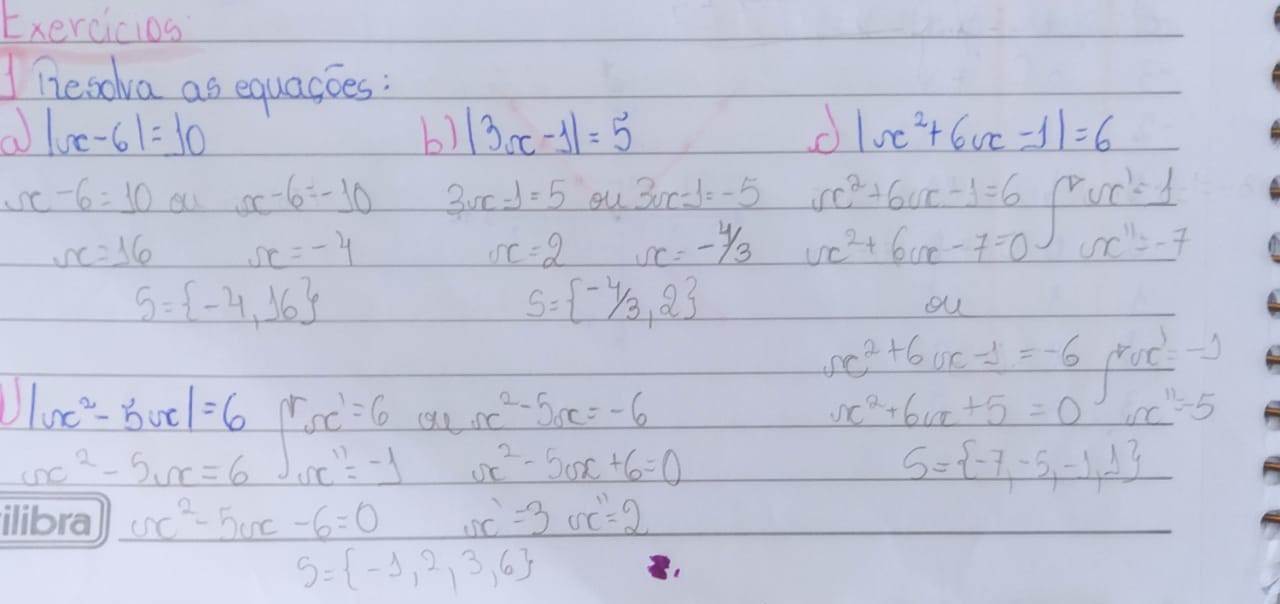 Exercícios
1 Resolva as equações:
a) |x-6|=10
x-6=10 ou x-6=-10
x=16 x=-4
S={-4,16}
b) |3x-1|=5
3x-1=5 ou 3x-1=-5
x=2 x=-4/3
S={-4/3,2}
c) |x²+6x-1|=6
x²+6x-1=6 x'=1
x²+6x-7=0 x''=-7
ou
x²+6x-1=-6 x'=-1
x²+6x+5=0 x''=-5
S={-7,-5,-1,1}
) |x²-5x|=6 x'=6 ou x²-5x=-6
x²-5x=6 x''=-1 x²-5x+6=0
x²-5x-6=0 x'=3 x''=2
S={-1,2,3,6}
ilibra